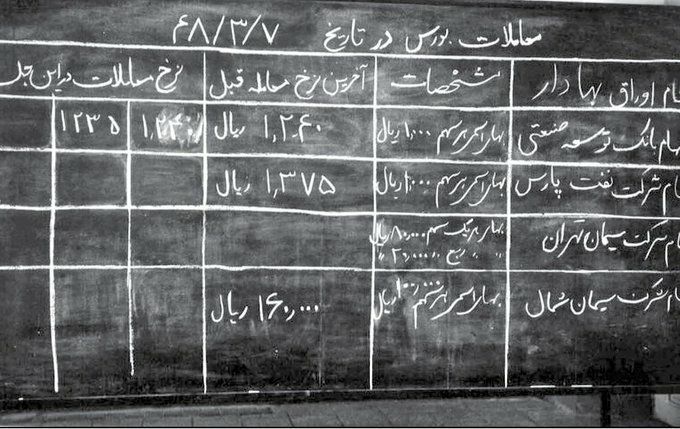 معاملات بورس در تاریخ ۶۸/۳/۷
نام اوراق بهادار مشخصات آخرین نرخ معامله قبل نرخ معاملات در این جلسه
سهام بانک توسعه صنعتی بهای اسمی هر سهم ۱,۰۰۰ ریال ۱,۲۶۰ ریال ۱,۲۴۰ ۱۲۳۵
سهام شرکت نفت پارس بهای اسمی هر سهم ۱,۰۰۰ ریال ۱,۳۷۵ ریال
سهام شرکت سیمان تهران بهای هر یک سهم ریال
سهام شرکت سیمان شمال بهای اسمی هر سهم ریال ۱۶۰,۰۰۰ ریال